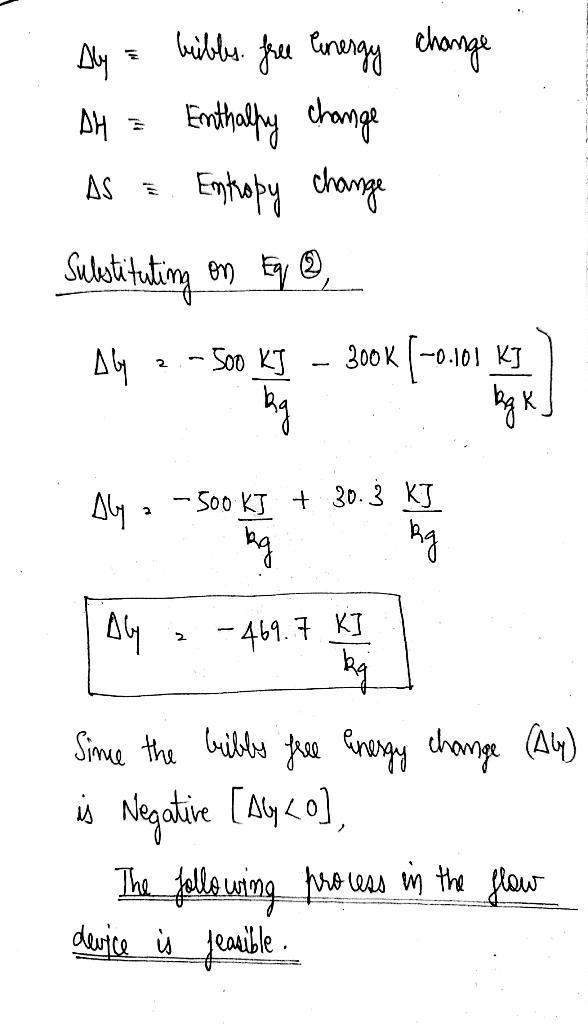 ΔG = Gibbs. free Energy change
ΔH = Enthalpy change
ΔS = Entropy change
Substituting on Eq ②,
ΔG = - 500 KJ/kg - 300K [-0.101 KJ/kg K]
ΔG = - 500 KJ/kg + 30.3 KJ/kg
ΔG = - 469.7 KJ/kg
Since the Gibbs free Energy change (ΔG)
is Negative [ΔG < 0],
The following process in the flow
device is feasible.